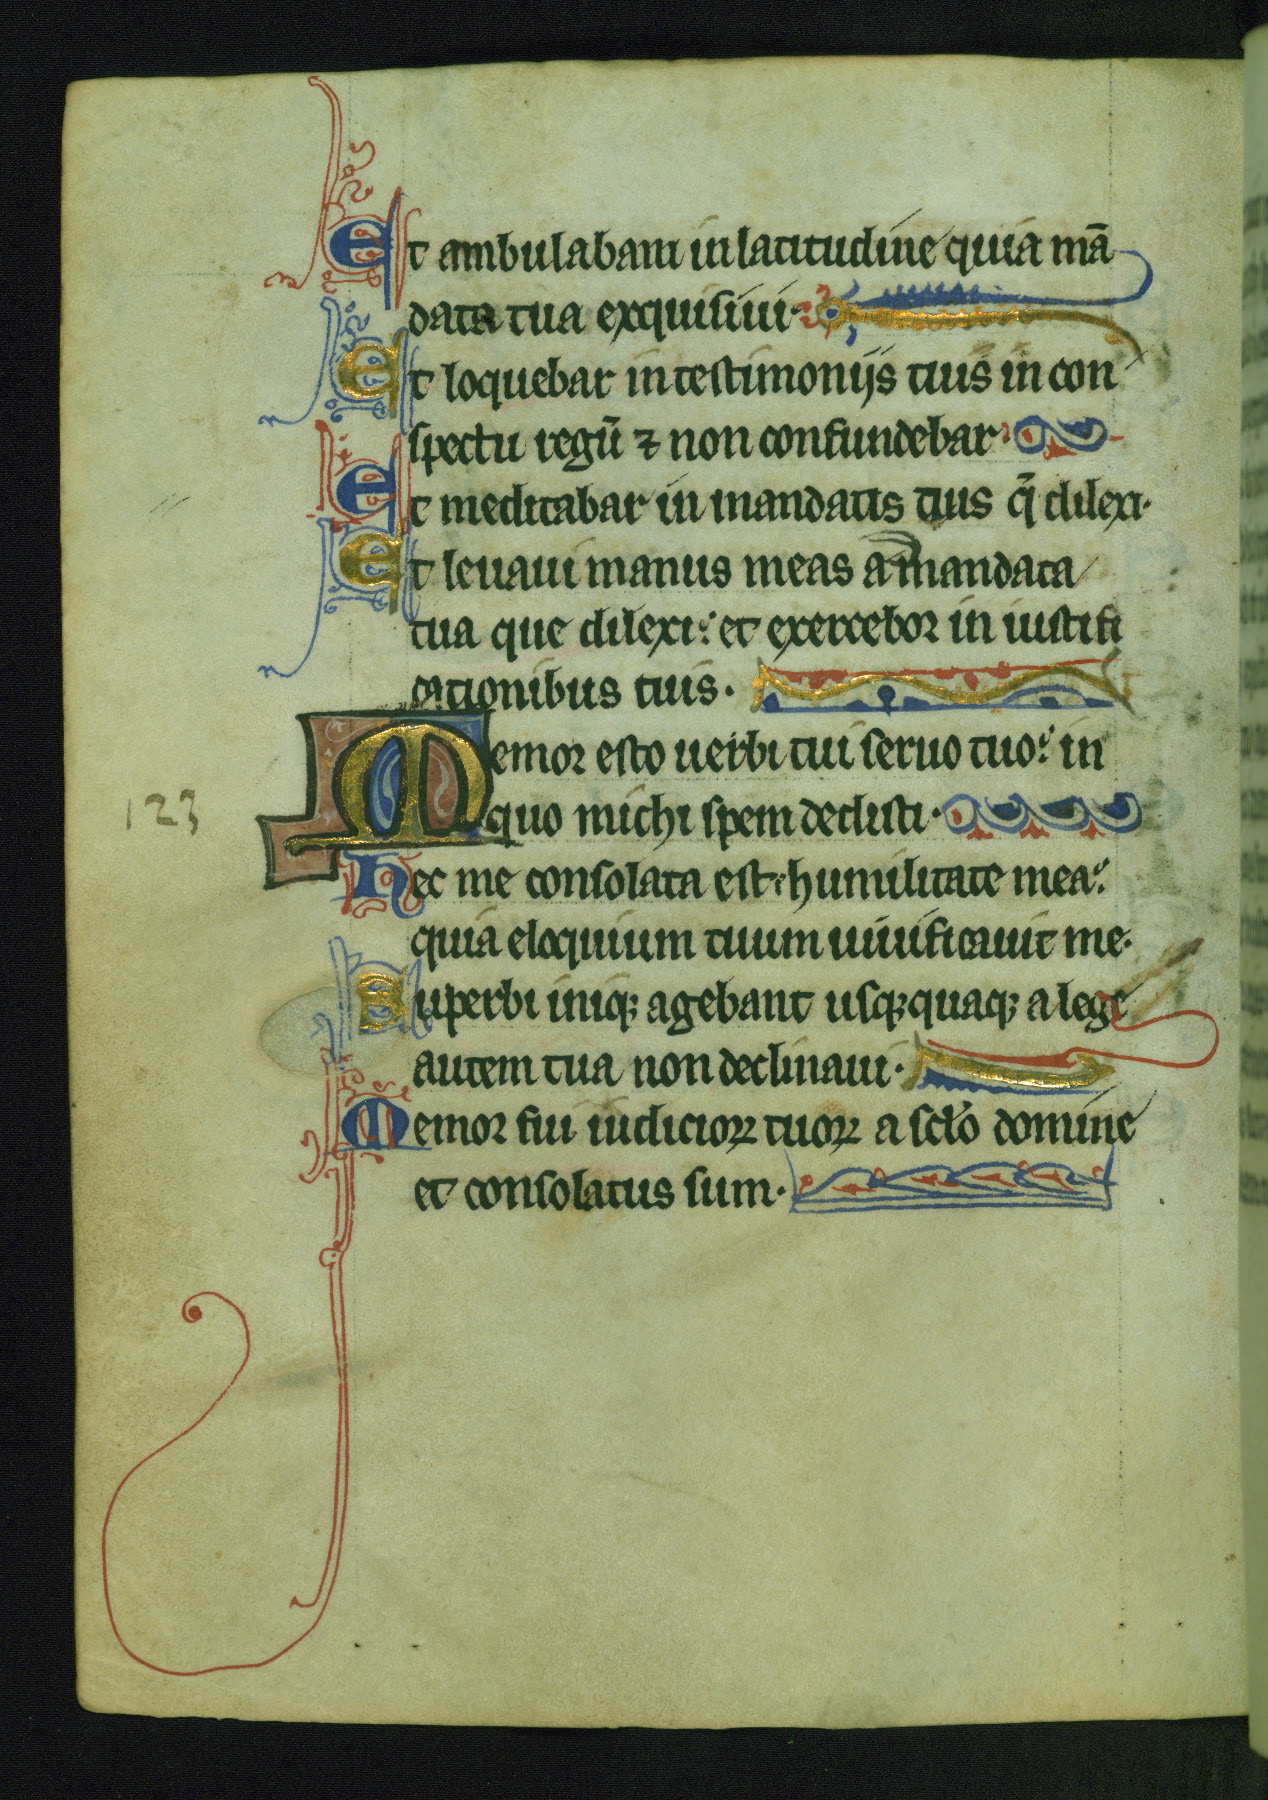 Et ambulabam in latitudine quia mā
data tua exquisiui·
Et loquebar in testimonijs tuis in con
spectu regū ⁊ non confundebar·
Et meditabar in mandatis tuis q̄ dilexi·
Et leuaui manus meas a mandata
tua que dilexi: et exercebor in iustifi
cationibus tuis·
Memor esto uerbi tui seruo tuo: in
quo michi spem dedisti·
123
Hec me consolata est humilitate mea:
quia eloquium tuum uiuificauit me·
Superbi iniqꝫ agebant usqꝫquaqꝫ a lege
autem tua non declinaui·
Memor fui iudicioꝝ tuoꝝ a sclo domine
et consolatus sum·